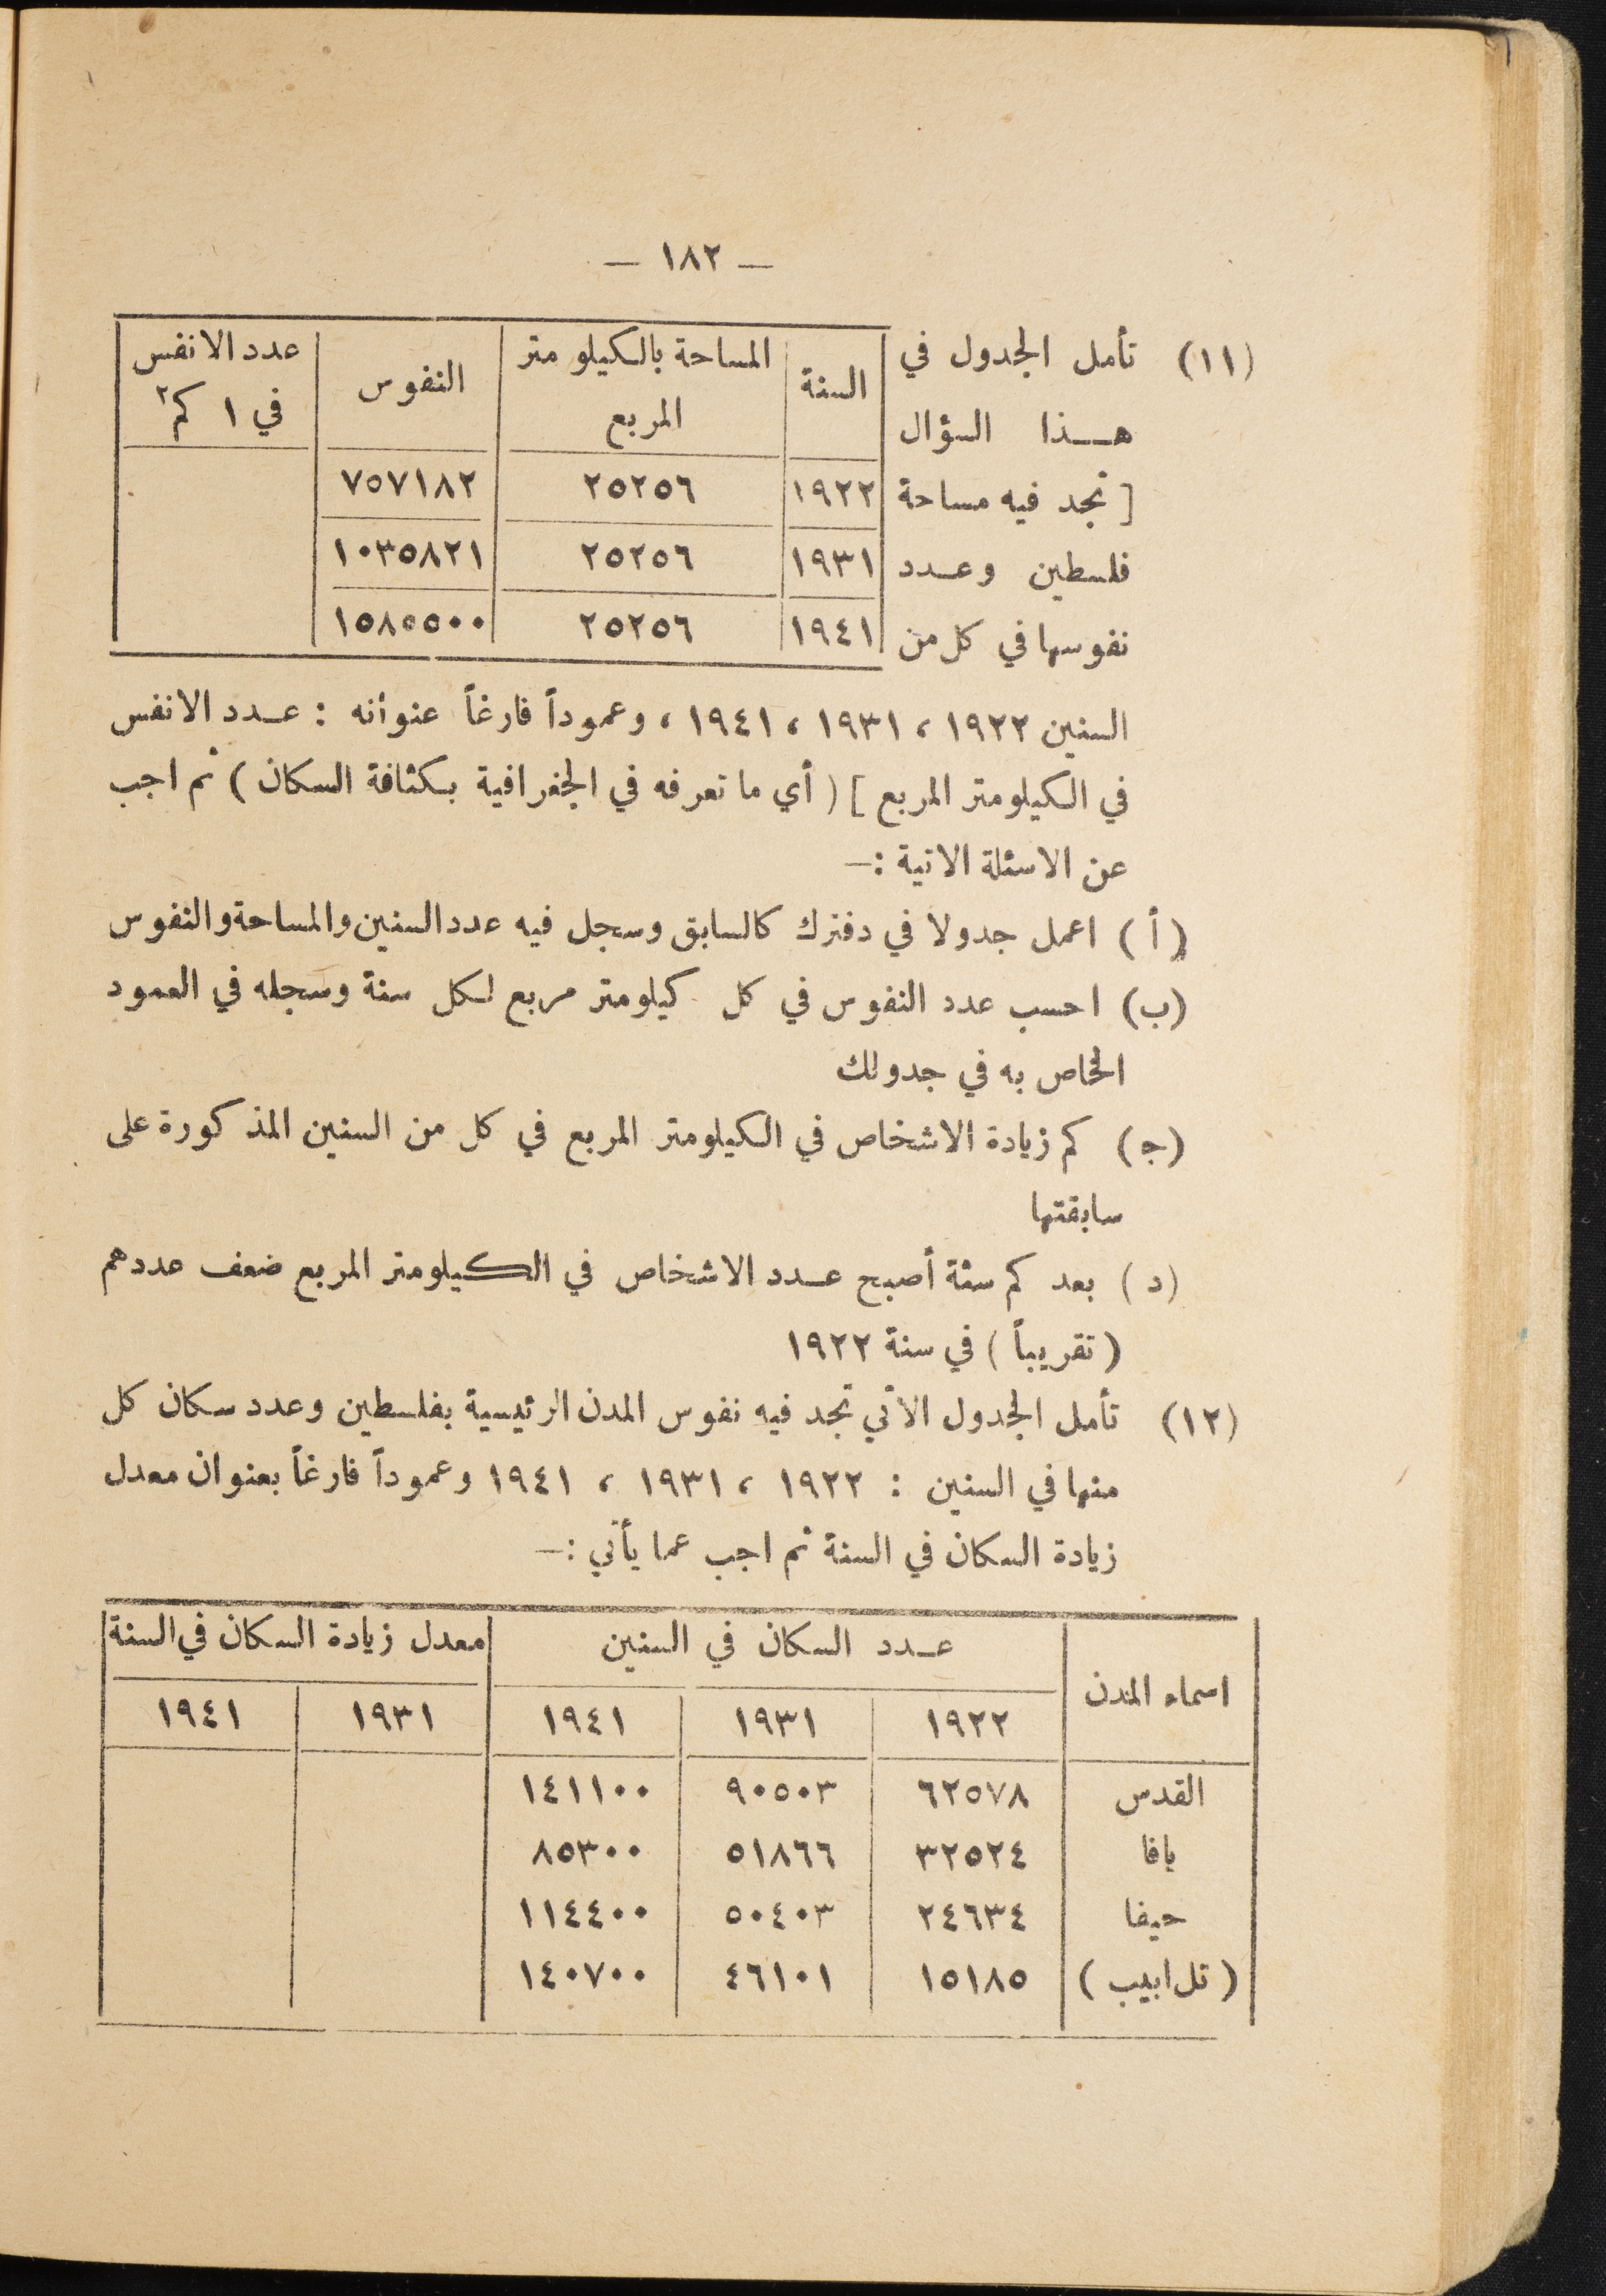 — ١٨٢ —
(١١) تأمل الجدول في
هـذا السؤال
[ تجد فيه مساحة
فلسطين وعـدد
نفوسها في كل من
السنة | المساحة بالكيلو متر المربع | النفوس | عدد الانفس في ١ كم٢
١٩٢٢ | ٢٥٢٥٦ | ٧٥٧١٨٢
١٩٣١ | ٢٥٢٥٦ | ١٠٣٥٨٢١
١٩٤١ | ٢٥٢٥٦ | ١٥٨٥٥٠٠
السنين ١٩٢٢ ، ١٩٣١ ، ١٩٤١ ، وعموداً فارغاً عنوانه : عـدد الانفس
في الكيلومتر المربع ] ( أي ما تعرفه في الجغرافية بكثافة السكان ) ثم اجب
عن الاسئلة الاتية :—
( أ ) اعمل جدولا في دفترك كالسابق وسجل فيه عدد السنين والمساحة والنفوس
(ب) احسب عدد النفوس في كل كيلومتر مربع لكل سنة وسجله في العمود
الخاص به في جدولك
(ج) كم زيادة الاشخاص في الكيلومتر المربع في كل من السنين المذكورة على
سابقتها
( د ) بعد كم سنة أصبح عـدد الاشخاص في الكيلومتر المربع ضعف عددهم
( تقريباً ) في سنة ١٩٢٢
(١٢) تأمل الجدول الآتي تجد فيه نفوس المدن الرئيسية بفلسطين وعدد سكان كل
منها في السنين : ١٩٢٢ ، ١٩٣١ ، ١٩٤١ وعموداً فارغاً بعنوان معدل
زيادة السكان في السنة ثم اجب عما يأتي :—
اسماء المدن | عـدد السكان في السنين | معدل زيادة السكان في السنة
١٩٢٢ | ١٩٣١ | ١٩٤١ | ١٩٣١ | ١٩٤١
القدس | ٦٢٥٧٨ | ٩٠٥٠٣ | ١٤١١٠٠
يافا | ٣٢٥٢٤ | ٥١٨٦٦ | ٨٥٣٠٠
حيفا | ٢٤٦٣٤ | ٥٠٤٠٣ | ١١٤٤٠٠
( تل ابيب ) | ١٥١٨٥ | ٤٦١٠١ | ١٤٠٧٠٠